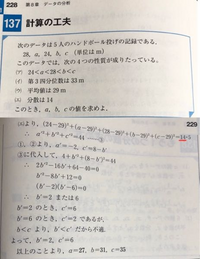 228 第8章 データの分析
137 計算の工夫
次のデータは5人のハンドボール投げの記録である。
28, a, 24, b, c (単位はm)
このデータでは, 次の4つの性質が成りたっている。
(ア) 24<a<28<b<c
(イ) 第3四分位数は33m
(ウ) 平均値は29m
(エ) 分散は14
このとき, a, b, cの値を求めよ.
229
より, (24-29)²+(a-29)²+(28-29)²+(b-29)²+(c-29)²=14・5
∴ a'²+b'²+c'²=44 ……③
①, ②より, a'=-2, c'=8-b'
③に代入して, 4+b'²+(8-b')²=44
∴ 2b'²-16b'+64-40=0
b'²-8b'+12=0
(b'-2)(b'-6)=0
∴ b'=2 または 6
b'=2 のとき, c'=6
b'=6 のとき, c'=2 であるが,
b<c より b'<c' だから不適.
よって, b'=2, c'=6
以上のことより, a=27, b=31, c=35